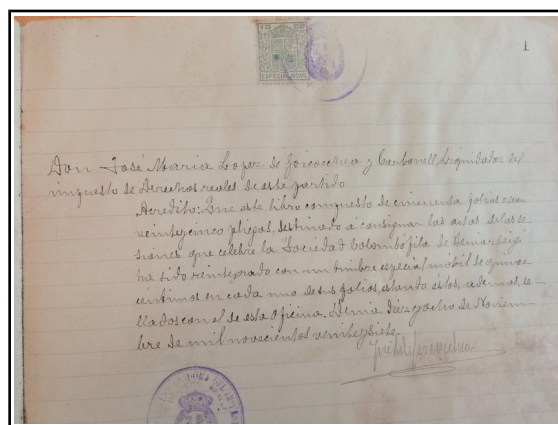 1
15 CS
ESPECIAL MOVIL
Don José Maria Lopez de Goicoechea y Carbonell, Liquidador del
impuesto de Derechos reales de este partido
Acredito: Que este libro compuesto de cincuenta folios o sean
veinticinco pliegos, destinado a consignar las actas de las se-
siones que celebre la Sociedad Colombófila de Beniarbeig
ha sido reintegrado con un timbre especial móbil de quince
céntimos en cada uno de sus folios, estando estos, además, se-
llados con el de esta Oficina. Denia diez y ocho de Noviem-
bre de mil novecientos veinte y siete.